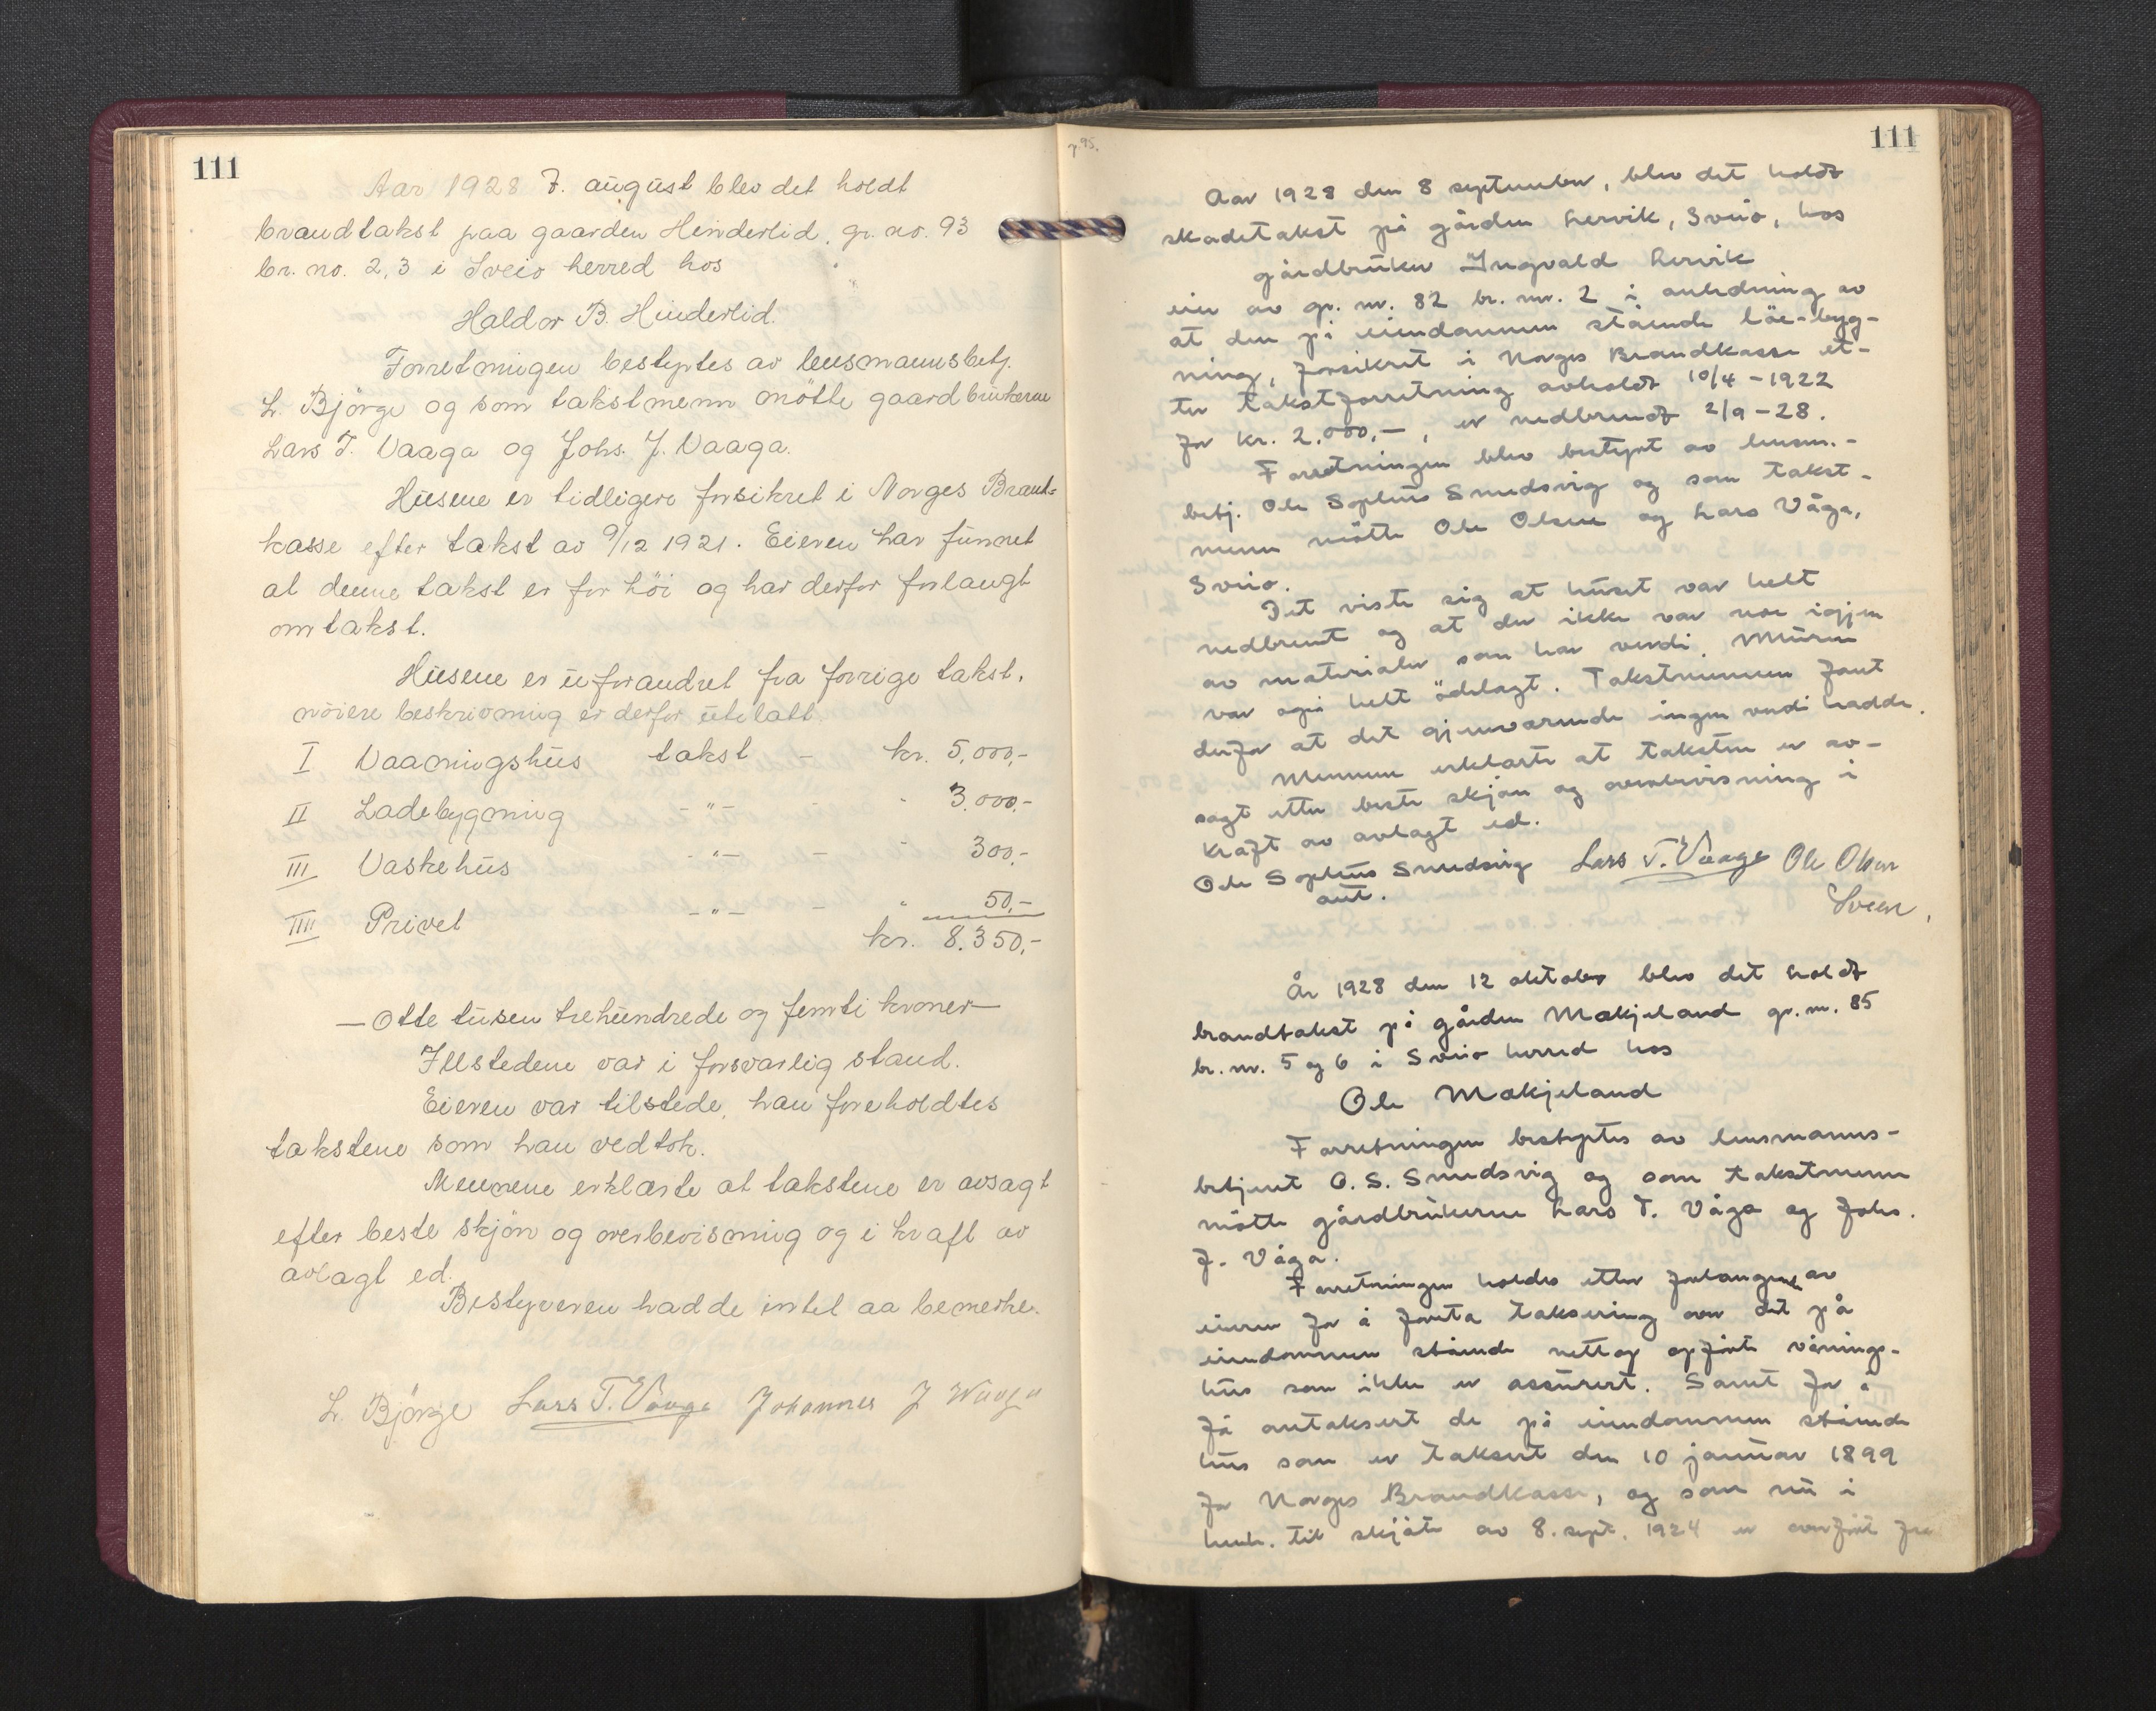 111
Aar 1928 7. august blev det holdt
brandtakst paa gaarden Hinderlid, gr. no. 93
br. no. 2, 3 i Sveio herred hos
Haldor B. Hinderlid.
Forretningen bestyrtes av lensmannsbetj.
L. Bjørge og som takstmenn møtte gaardbrukerne
Lars T. Vaaga og Johs. J. Vaaga.
Husene er tidligere forsikret i Norges Brand-
kasse efter takst av 9/12 1921. Eieren har funnet
at denne takst er for høi og har derfor forlangt
omtakst.
Husene er uforandret fra forrige takst,
nøiere beskrivning er derfor utelatt.
I Vaaningshus takst - kr. 5,000,-
II Ladebygning -"- - - 3.000,-
III Vaskehus -"- - - 300,-
IIII Privet -"- - - 50,-
kr. 8.350,-
— Otte tusen trehundrede og femti kroner —
Ildstedene var i forsvarlig stand.
Eieren var tilstede, han foreholdtes
takstene som han vedtok.
Mennene erklærte at takstene er avsagt
efter beste skjøn og overbevisning og i kraft av
avlagt ed.
Bestyreren hadde intet aa bemerke.
L. Bjørge Lars T. Vaaga Johannes J Waage
p. 95.
111
Aar 1928 den 8 september, blev det holdt
skadetakst på gården Lervik, Sveio, hos
gårdbruker Ingvald Lervik
eier av gr. nr. 82 br. nr. 2 i anledning av
at den på eiendommen stående løe-byg-
ning, forsikret i Norges Brandkasse et-
ter takstforretning avholdt 10/4 - 1922
for kr. 2.000,-, er nedbrendt 2/9 - 28.
Forretningen blev bestyrt av lensm.-
betj. Ole Sophus Smedsvig og som takst-
menn møtte Ole Olsen og Lars Våga,
Sveio.
Det viste sig at huset var helt
nedbrent og at der ikke var noe igjen
av materialer som har verdi. Muren
var også helt ødelagt. Takstmennen fant
derfor at det gjenværende ingen verdi hadde.
Mennene erklærte at taksten er av-
sagt etter beste skjøn og overbevisning i
kraft av avlagt ed.
Ole Sophus Smedsvig Lars T. Vaage Ole Olsen
aut. Sveen,
År 1928 den 12 oktober blev det holdt
brandtakst på gården Mækjeland gr. nr. 85
br. nr. 5 og 6 i Sveio herred hos
Ole Mækjeland
Forretningen bestyrtes av lensmanns-
betjent O. S. Smedsvig og som takstmenn
møtte gårdbrukerne Lars T. Våga og Johs.
J. Våga.
Forretningen holdes etter forlangen av
eieren for å foreta taksering over det på
eiendommen stående nettop opførte vånings-
hus som ikke er assurert. Samt for å
få omtaksert de på eiendommen stående
hus som er taksert den 10 januar 1899
for Norges Brandkasse, og som nu i
henh. til skjøte av 8. sept. 1924 er overført fra